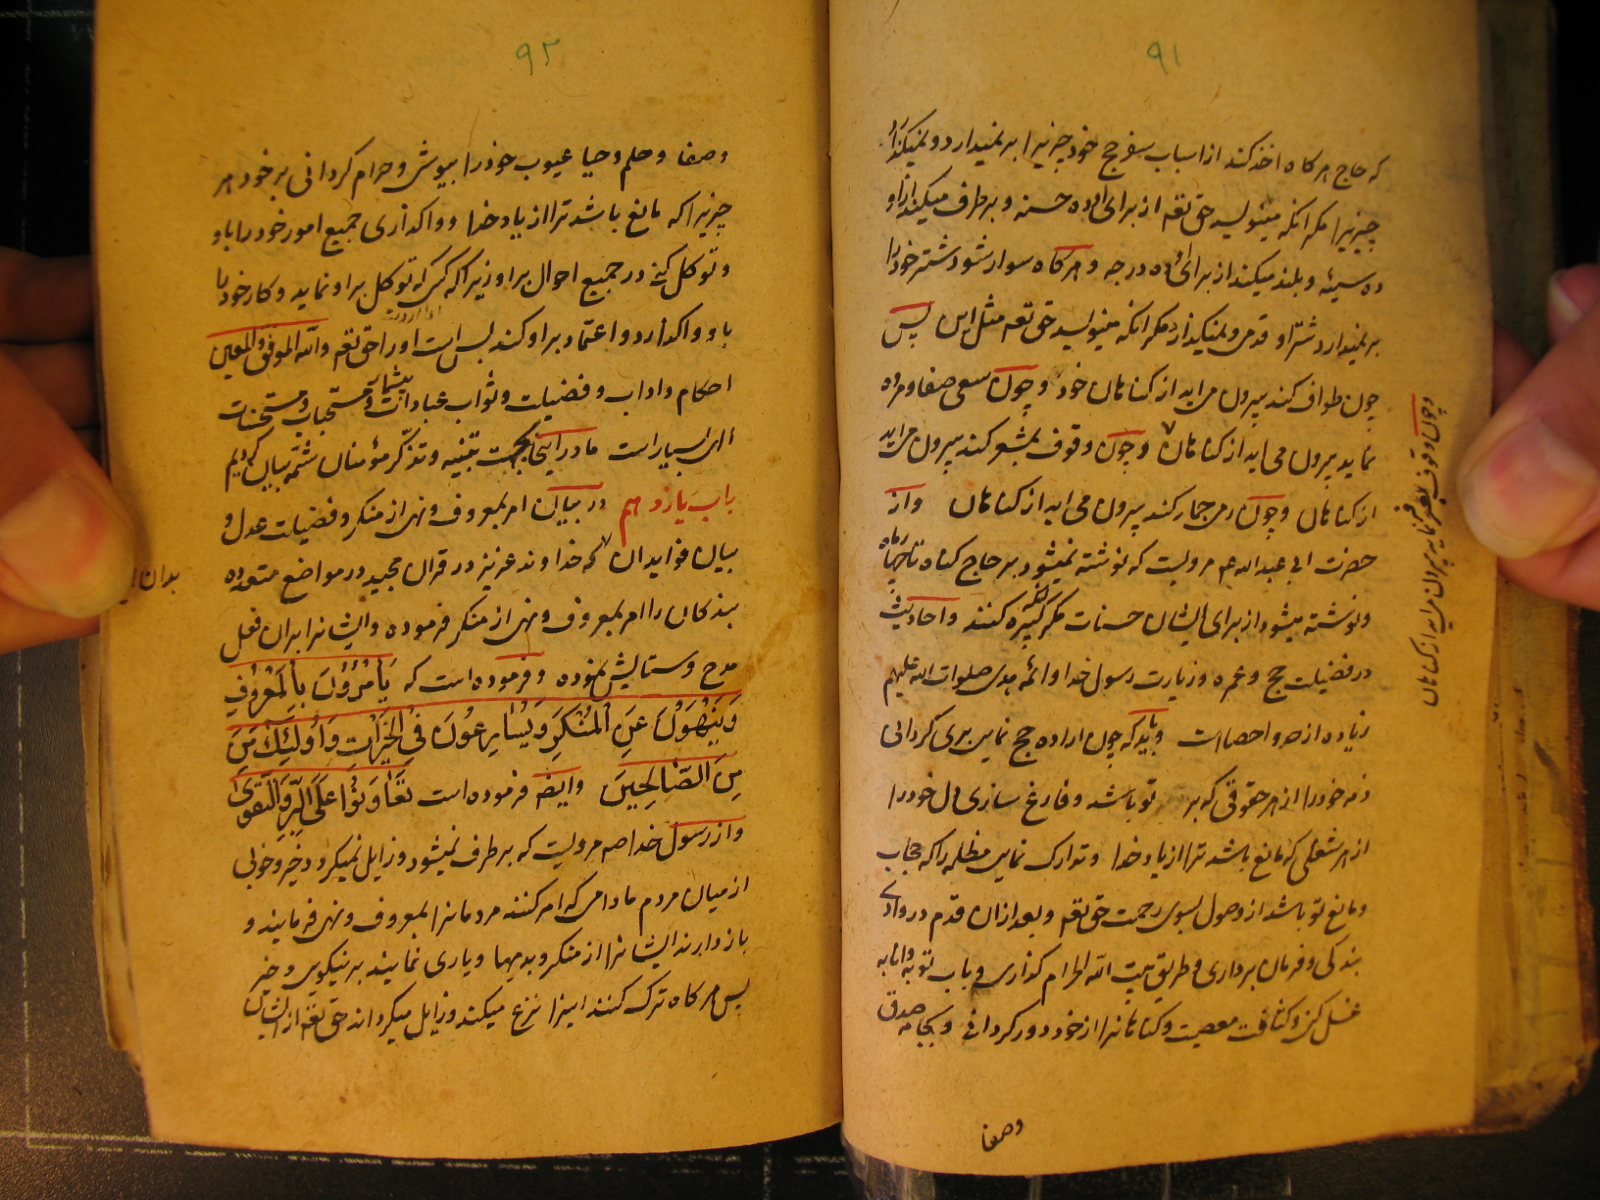 ۹۱
که حاج هرکاه اخذ کند از اسباب سفر حج خود چیزیرا برنمیدارد و نمیکذارد
چیزیرا مکر انکه مینویسد حق تعم از برای او ده حسنه و برطرف میکند از او
ده سیئه و بلند میکند از برای او ده درجه و هرکاه سوار شود شتر خود را
برنمیدارد شتر او قدمی و نمیکذارد مکر انکه مینویسد حق تعم مثل این پس
چون طواف کند بیرون می اید از کناهان خود و چون سعی صفا و مروه
نماید بیرون می اید از کناهان و چون وقوف بمشعر کند بیرون می اید
از کناهان و چون رمی جمار کند بیرون می اید از کناهان و از
حضرت ابی عبد الله عم مرویست که نوشته نمیشود بر حاج کناه تا چهار ماه
و نوشته میشود از برای ایشان حسنات مکر انکه کبیره کنند و احادیث
در فضیلت حج و عمره و زیارت رسول خدا و ائمه هدی صلوات الله علیهم
زیاده از حد و احصا است و باید که چون اراده حج نمایی بری کردانی
ذمه خود را از هر حقوقی که بر تو باشد و فارغ سازی دل خود را
از هر شغلی که مانع باشد ترا از یاد خدا و تدارک نمایی مظلمه را که حجاب
و مانع تو باشد از وصول بسوی رحمت حق تعم و بعد از ان قدم در وادی
بندکی و فرمان برداری و طریق بیت الله الحرام کذاری و باب توبه و انابه
غسل کنی و کثافت معصیت و کناهانرا از خود دور کردانی و بجامه صدق
وصفا
و چون وقوف بعرفه نماید بیرون می اید از کناهان
۹۲
وصفا و حلم و حیا عیوب خود را بپوشی و حرام کردانی بر خود هر
چیزیرا که مانع باشد ترا از یاد خدا و واکذاری جمیع امور خود را باو
و توکل کنی در جمیع احوال بر او زیرا که هر که توکل بر او نماید و کار خود را
باو واکذارد و اعتماد بر او کند بس است او را حق تعم والله الموفق والمعین
احکام و اداب و فضیلت و ثواب عبادات و مستحبات و مستحسنات
الهی بسیار است ما در اینجا بجهت تنبیه و تذکر مؤمنان شمه بیان کردیم
باب یازدهم در بیان امر بمعروف و نهی از منکر و فضیلت عدل و
بیان فواید ان که خداوند عزیز در قران مجید در مواضع متعدده
بندکان را امر بمعروف و نهی از منکر فرموده و ایشانرا بر ان فعل
مدح و ستایش نموده و فرموده است که یَأمُرُونَ بِالمَعرُوفِ
وَیَنهَونَ عَنِ المُنکَرِ وَیُسَارِعُونَ فِی الخَیرَاتِ وَاُولَئِکَ مِنَ
مِنَ الصَّالِحِینَ و ایضا فرموده است تَعَاوَنُوا عَلَی البِرِّ وَالتَّقوَی
و از رسول خدا صم مرویست که برطرف نمیشود و زایل نمیکردد خیر و خوبی
از میان مردم مادامی که امر کنند مردمانرا بمعروف و نهی فرمایند و
باز دارند ایشانرا از منکر و بدیها و یاری نمایند بر نیکوی و خیر
پس هرکاه ترک کنند اینرا نزع میکند و زایل میکرداند حق تعم از ایشان
بدان